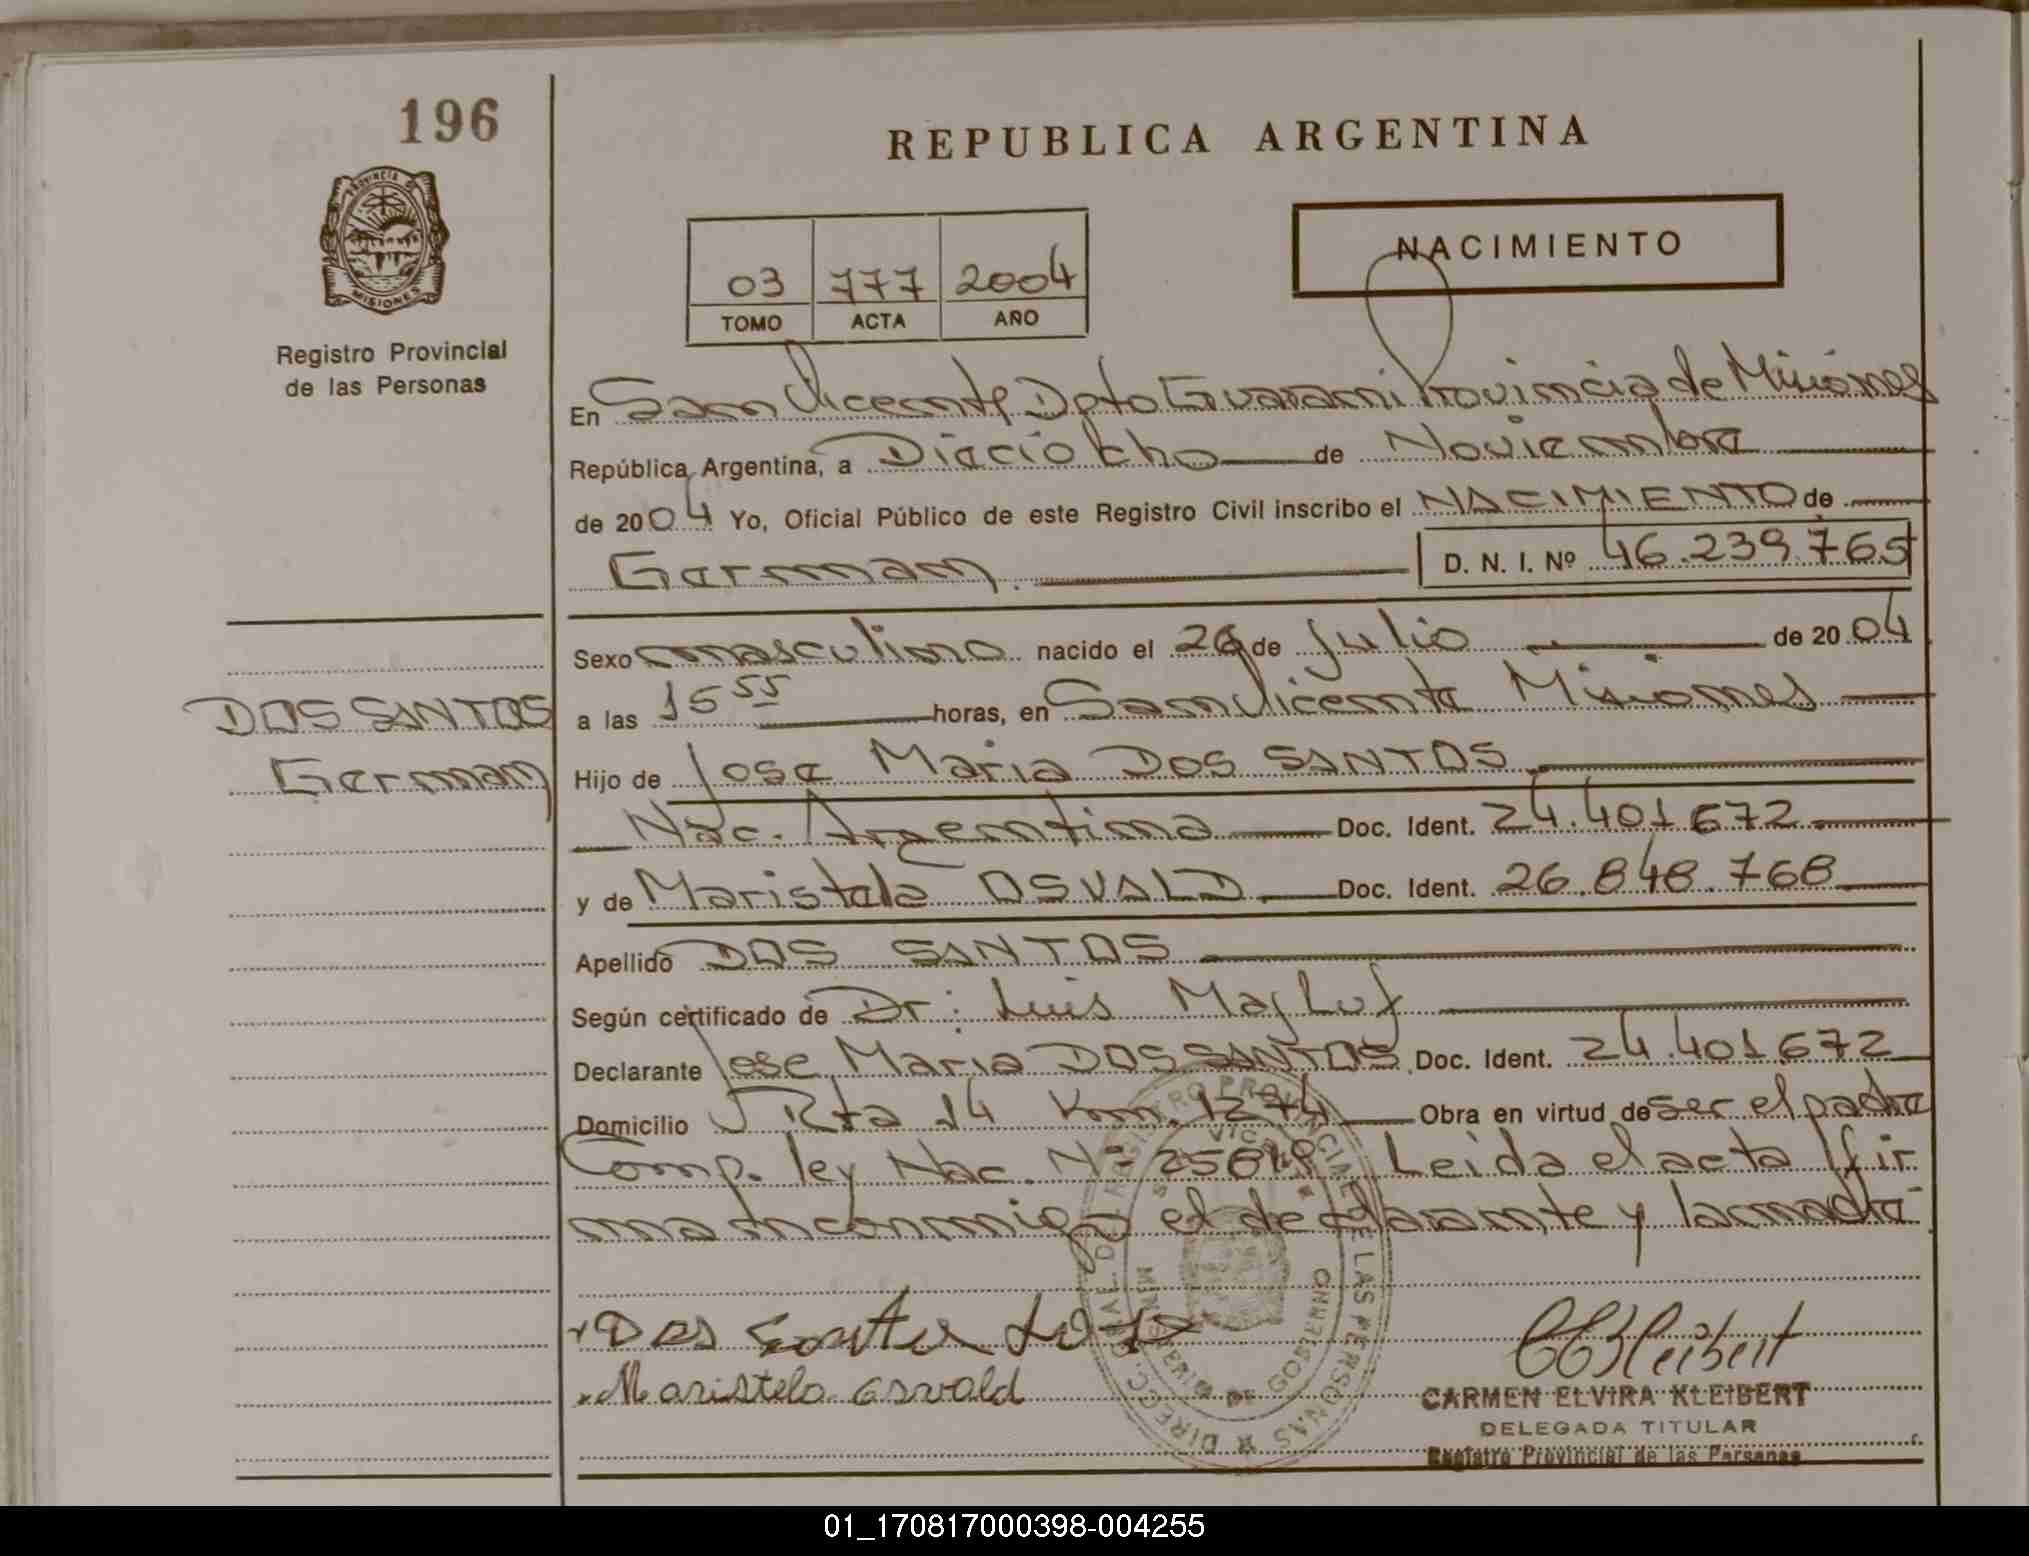 196
REPUBLICA ARGENTINA
PROVINCIA DE
MISIONES
Registro Provincial
de las Personas
03 777 2004
TOMO ACTA AÑO
NACIMIENTO
En San Vicente Dpto Guarani Provincia de Misiones
República Argentina, a Dieciocho de Noviembre
de 2004 Yo, Oficial Público de este Registro Civil inscribo el NACIMIENTO de
German D. N. I. Nº 46.239.765
Sexo masculino nacido el 26 de Julio de 2004
DOS SANTOS
German
a las 15 55 horas, en San Vicente Misiones
Hijo de Jose Maria DOS SANTOS
Nac. Argentina Doc. Ident. 24.401.672
y de Maristela OSVALD Doc. Ident. 26.848.768
Apellido DOS SANTOS
Según certificado de Dr: Luis Majluf
Declarante Jose Maria DOS SANTOS Doc. Ident. 24.401.672
Domicilio Rta 14 Km. 1274 Obra en virtud de ser el padre
Comp. ley Nac. Nº Leida el acta fir
man conmigo el declarante y la madre
Dos
Maristela Osvald
CKleibert
CARMEN ELVIRA KLEIBERT
DELEGADA TITULAR
Registro Provincial de las Personas
01_170817000398-004255